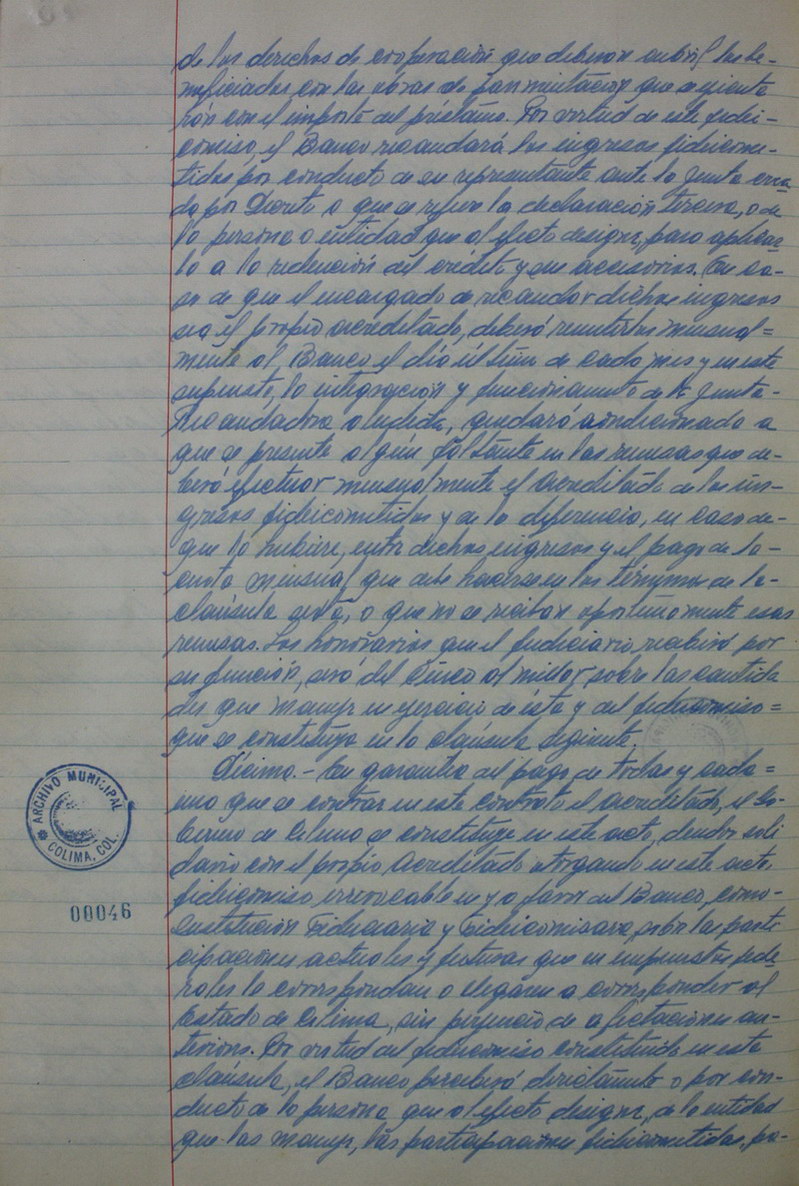 de los derechos de cooperación que deberan cubrir los be-
neficiados con las obras de pavimentación que se ejecuta
rán con el importe del préstamo. Por virtud de este fidei-
comiso, el Banco recaudará los ingresos fideicome-
tidos por conducto de su representante ante la Junta crea
da por Decreto a que se refiere la declaración tercera, o de
la persona o entidad que al efecto designe, para aplicar
lo a la redención del crédito y sus accesorios. En ca-
so de que el encargado de recaudar dichos ingresos
sea el propio acreditado, deberá remitirlos mensual=
mente al Banco el día último de cada mes y en este
supuesto, la integración y funcionamiento de la Junta-
Recaudadora aludida, quedará condicionado a
que se presente algún faltante en las remesas que de-
berá efectuar mensualmente el Acreditado de los in-
gresos fideicometidos y de la diferencia, en caso de-
que la hubiere, entre dichos ingresos y el pago de la-
cuota mensual que debe hacerse en los términos de la-
claúsula sexta, o que no se reciban oportunamente esas
remesas. Los honorarios que el fiduciario recibirá por
su función, será del cinco al millar sobre las cantida
des que maneje en ejercicio de ésta y del fideicomiso=
que se constituye en la claúsula siguiente.
Décima.- En garantía del pago de todas y cada=
una que se contrae en este contrato el acreditado, el Go-
bierno de Colima se constituye en este acto, deudor soli
dario con el propio Acreditado otorgando en este acto,
fideicomiso irrevocable en y a favor del Banco, como-
Institución Fiduciaria y Fideicomisaria, sobre las parti
cipaciones actuales y futuras que en impuestos fede-
rales le correspondan o llegaren a corresponder al
Estado de Colima, sin perjuicio de afectaciones an-
teriores. Por virtud del fideicomiso constituido en esta
claúsula, el Banco percibirá directamente o por con-
ducto de la persona que al efecto designe, de la entidad
que las maneje, las participaciones fideicometidas, pa-
ARCHIVO MUNICIPAL
COLIMA, COL.
00046